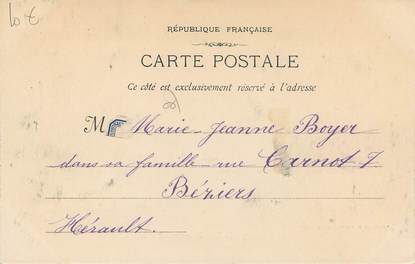 10 €
RÉPUBLIQUE FRANÇAISE
CARTE POSTALE
Ce côté est exclusivement réservé à l'adresse
M Marie-Jeanne Boyer
dans sa famille rue Carnot 7
Béziers
Hérault.